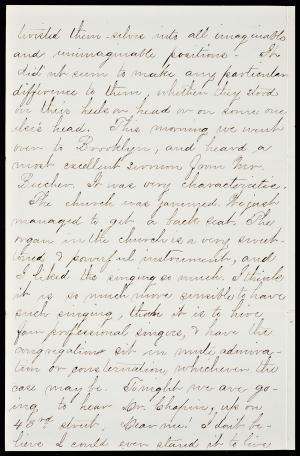 twisted them-selves into all imaginable
and unimaginable positions. It
did'nt seem to make any particular
difference to them, whether they stood
on their heels or head or on some one
else's head. This morning we went
over to Brooklyn, and heard a
most excellent sermon from Mr.
Beecher. It was very characteristic.
The church was jammed. We just
managed to get a back seat. The
organ in the church is a very sweet-
toned & powerful instrument, and
I liked the singing so much. I think
it is so much more sensible to have
such singing, than it is to hire
four professional singers, & have the
congregation sit in mute admira-
tion or consternation, whichever the
case may be. Tonight we are go-
ing to hear Dr. Chapin, up on
45th street. Dear me! I dont be-
lieve I could ever stand it to live